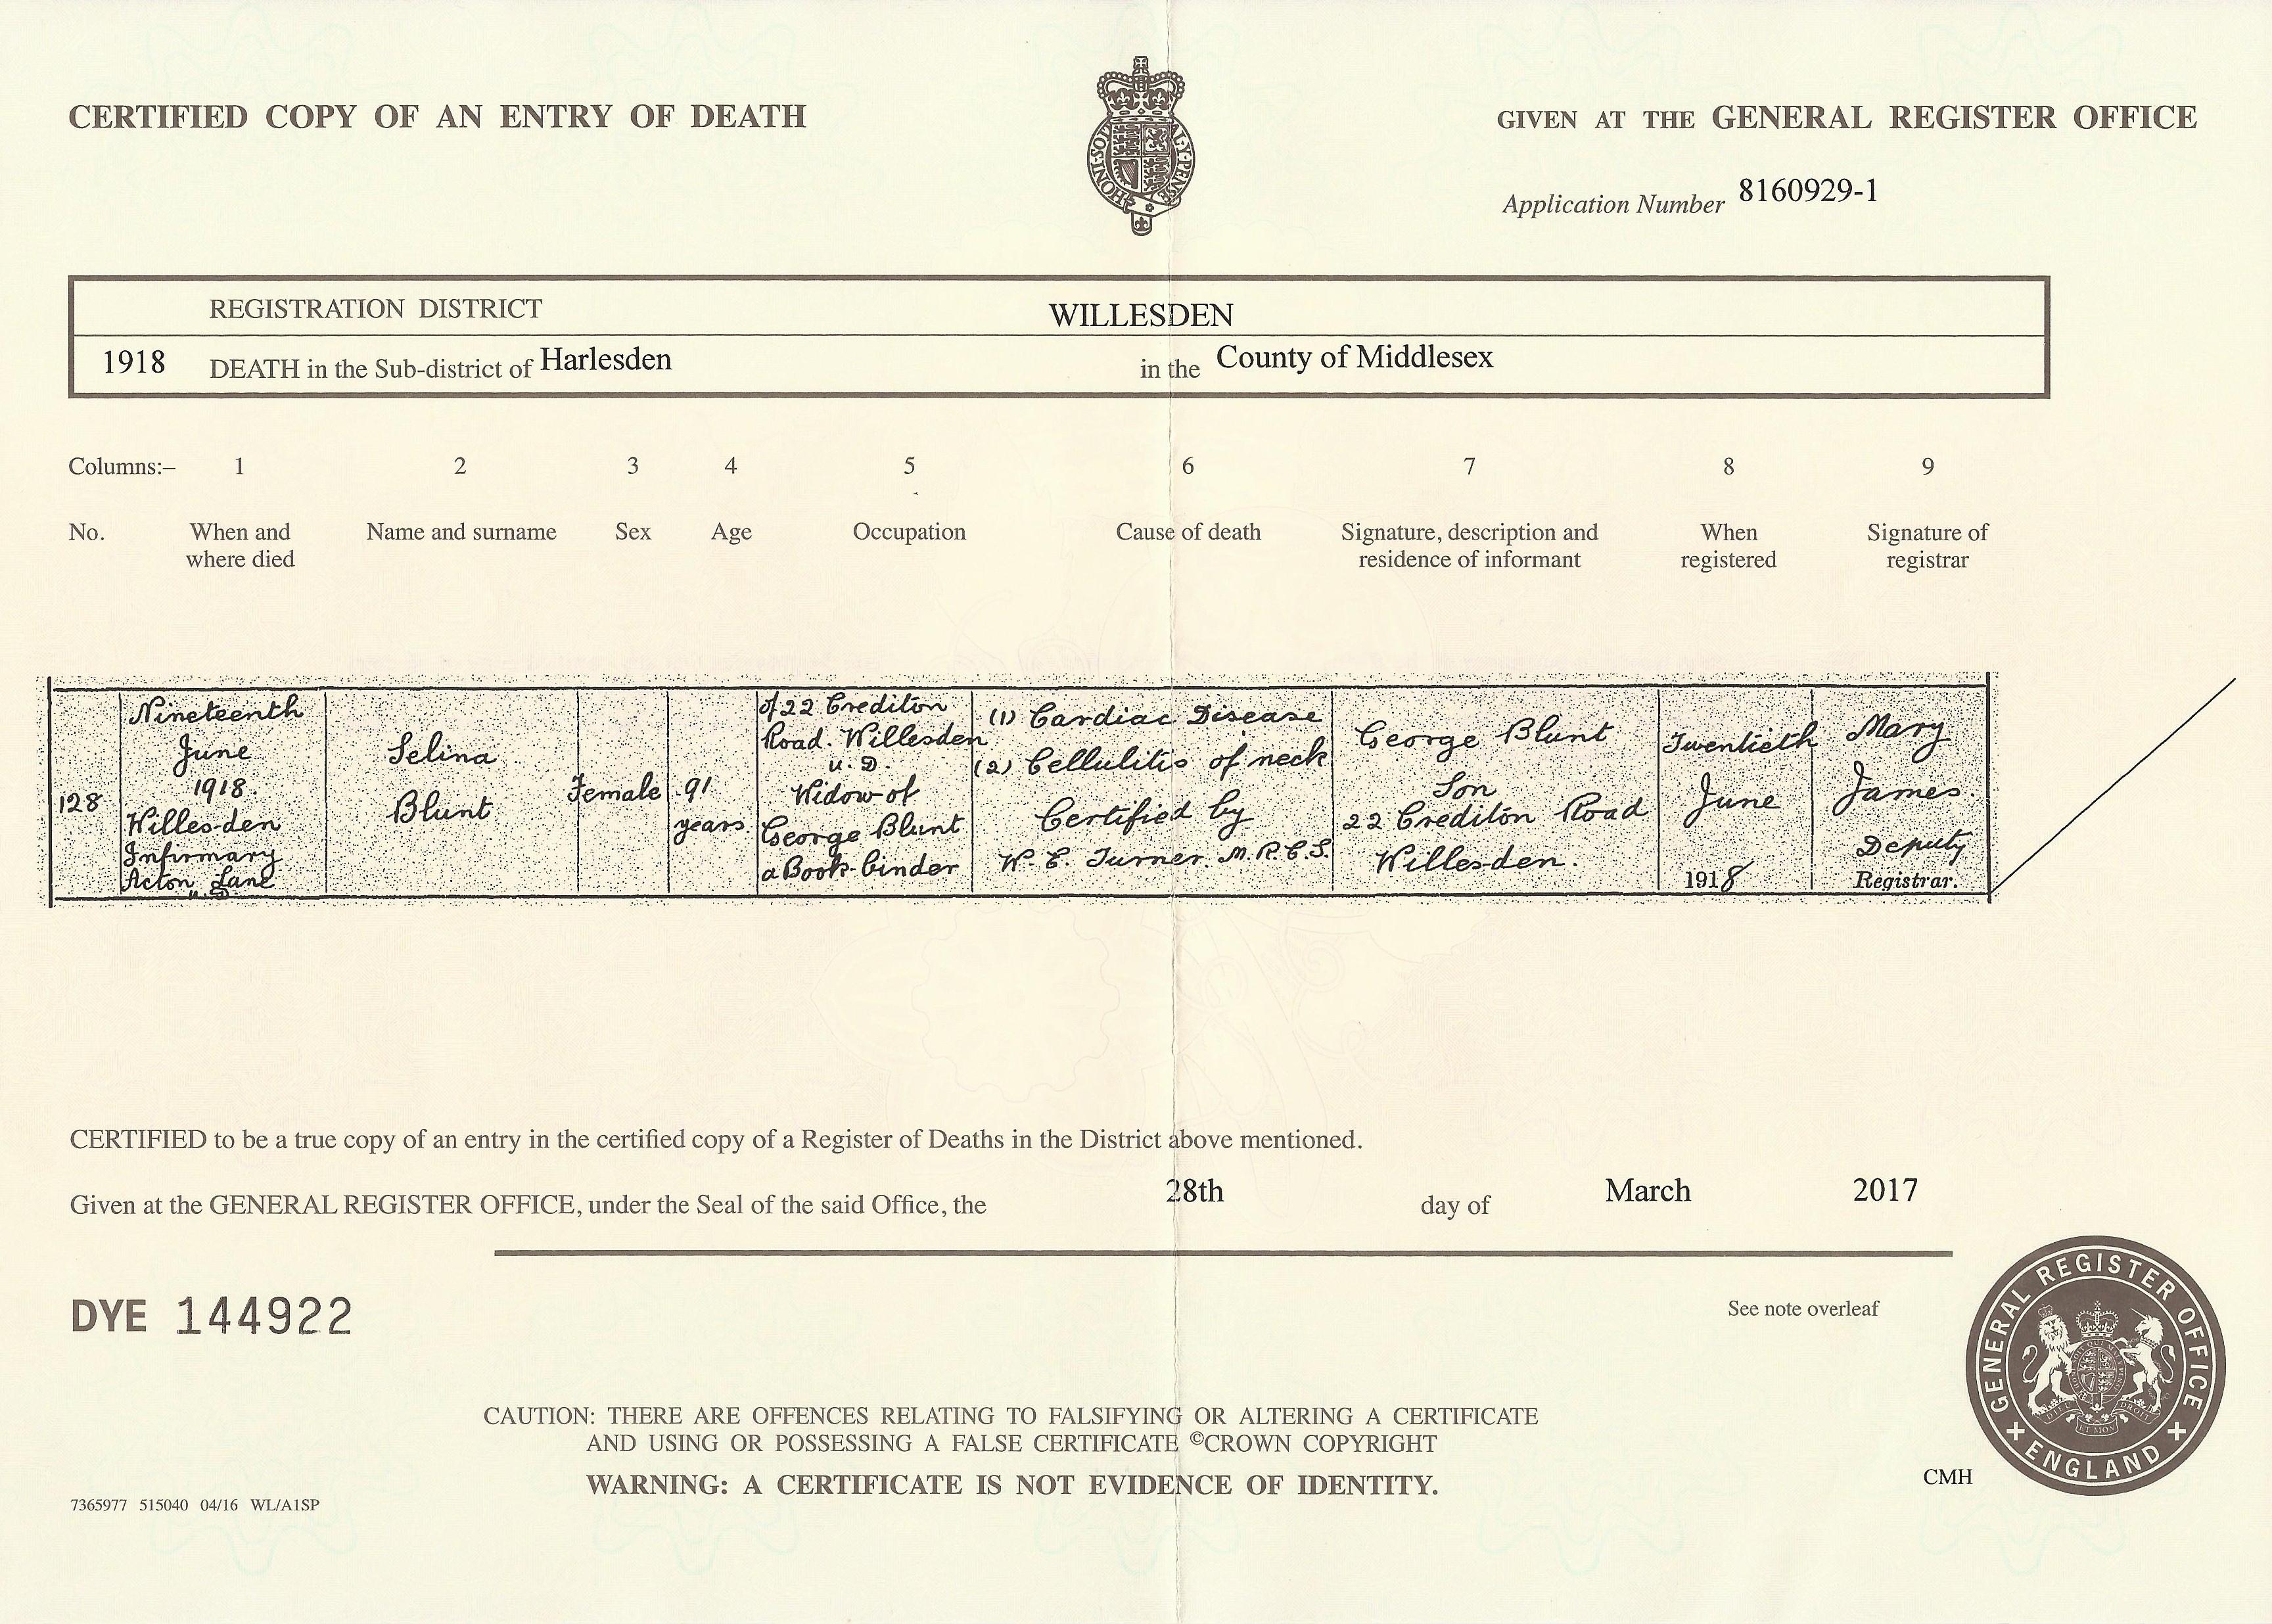 CERTIFIED COPY OF AN ENTRY OF DEATH
GIVEN AT THE GENERAL REGISTER OFFICE
HONI·SOI
AL·Y·PENSE
Application Number 8160929-1
REGISTRATION DISTRICT WILLESDEN
1918 DEATH in the Sub-district of Harlesden in the County of Middlesex
Columns:– 1 2 3 4 5 6 7 8 9
No.
When and
where died
Name and surname
Sex
Age
Occupation
Cause of death
Signature, description and
residence of informant
When
registered
Signature of
registrar
128
Nineteenth
June
1918.
Willesden
Infirmary
Acton Lane
U.D.
Selina
Blunt
Female
91
years
of 22 Crediton
Road. Willesden
U.D.
Widow of
George Blunt
a Book-binder
(1) Cardiac Disease
(2) Cellulitis of neck
Certified by
W. E. Turner. M.R.C.S.
George Blunt
Son
22 Crediton Road
Willesden.
Twentieth
June
1918
Mary
James.
Deputy
Registrar.
CERTIFIED to be a true copy of an entry in the certified copy of a Register of Deaths in the District above mentioned.
Given at the GENERAL REGISTER OFFICE, under the Seal of the said Office, the 28th day of March 2017
DYE 144922
See note overleaf
GENERAL REGISTER OFFICE
ENGLAND
DIEU ET MON DROIT
CAUTION: THERE ARE OFFENCES RELATING TO FALSIFYING OR ALTERING A CERTIFICATE
AND USING OR POSSESSING A FALSE CERTIFICATE ©CROWN COPYRIGHT
WARNING: A CERTIFICATE IS NOT EVIDENCE OF IDENTITY.
CMH
7365977 515040 04/16 WL/A1SP